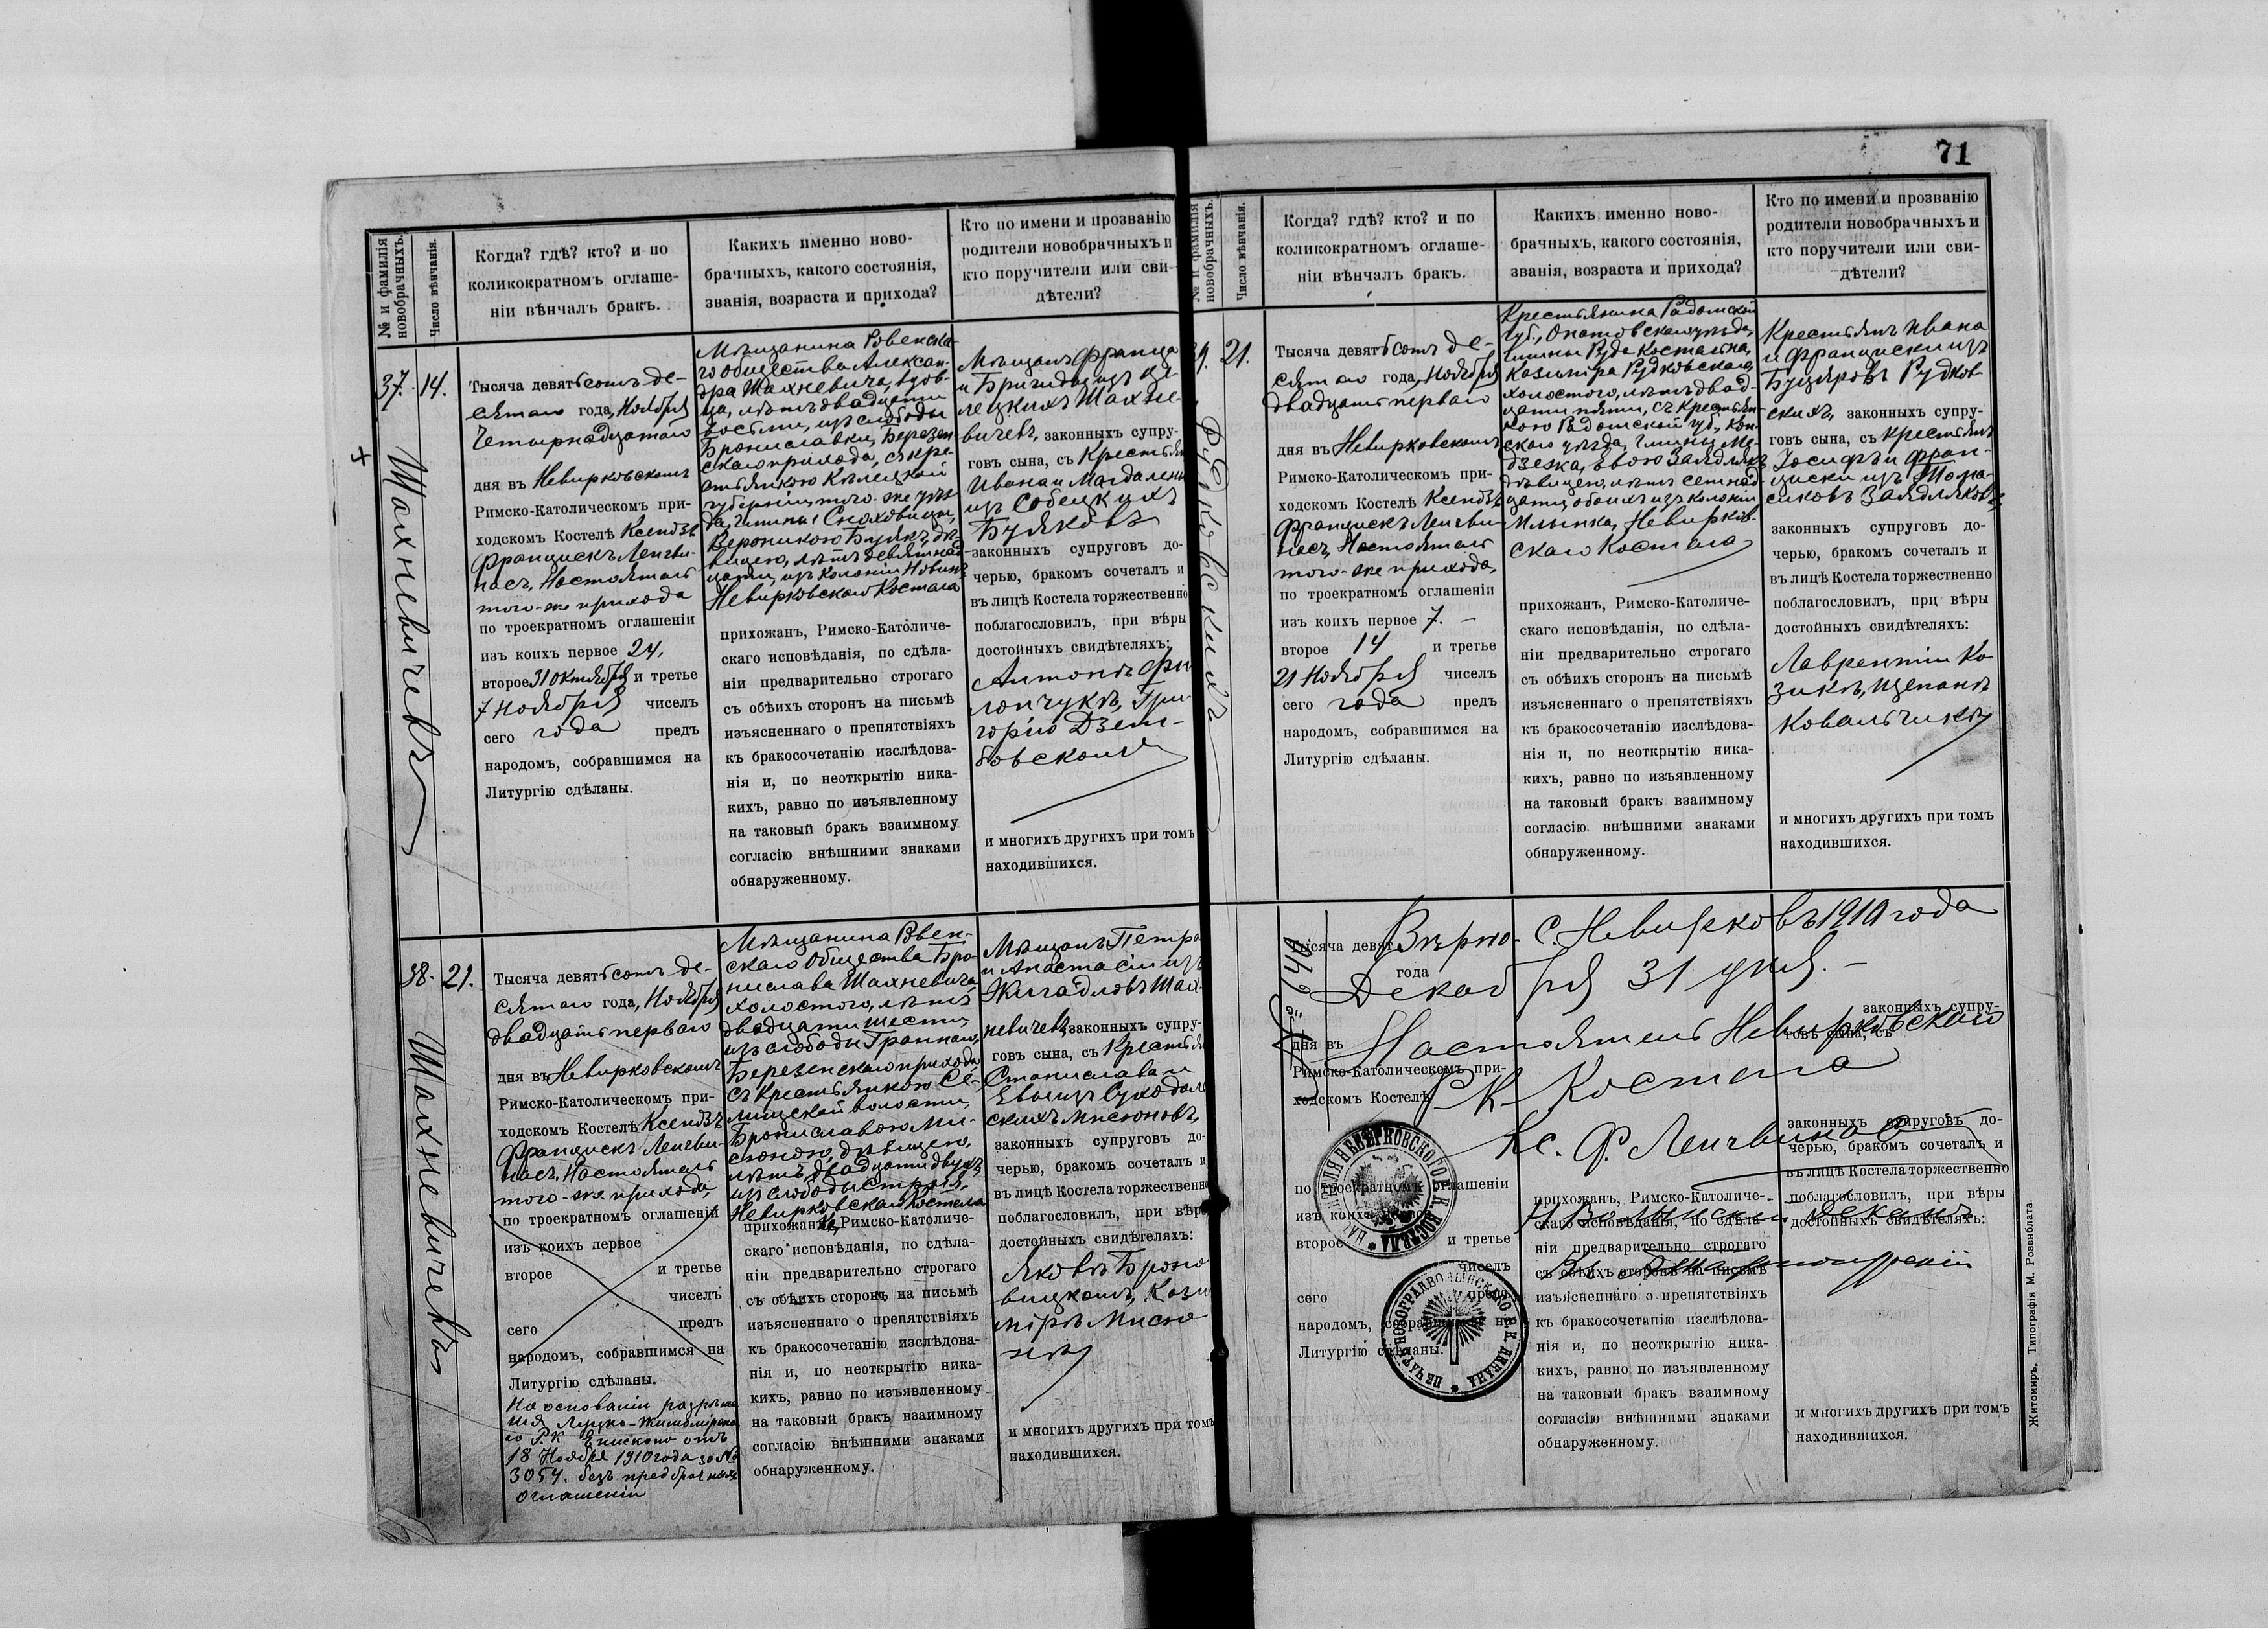 71
№ и фамилія
новобрачныхъ.
Число вѣнчанія.
Когда? гдѣ? кто? и по
коликократномъ оглаше-
ніи вѣнчалъ бракъ.
Какихъ именно ново-
брачныхъ, какого состоянія,
званія, возраста и прихода?
Кто по имени и прозванію
родители новобрачныхъ и
кто поручители или сви-
дѣтели?
37.
Шахневичевъ
14.
Тысяча девятьсотъ де-
сятаго года, Ноября
Четырнадцатаго
дня въ Невирковскомъ
Римско-Католическомъ при-
ходскомъ Костелѣ Ксендзъ
Францискъ Ленгви-
насъ, Настоятель
того-же прихода
по троекратномъ оглашеніи
изъ коихъ первое 24,
второе 31 Октября и третье
7 Ноября чиселъ
сего года предъ
народомъ, собравшимся на
Литургію сдѣланы.
Мѣщанина Ровенска-
го общества Алексан-
дра Шахневича, вдов-
ца, лѣтъ двадцати
восьми, изъ слободы
Брониславки, Березен-
скаго прихода, съ кре-
стьянкою Кѣлецкой
губерніи, того-же уѣз-
да, гмины Сноховицы,
Вероникою Буякъ, дѣ-
вицею, лѣтъ девятнад-
цати, изъ колоніи Новины
Невирковскаго Костела
прихожанъ, Римско-Католиче-
скаго исповѣданія, по сдѣла-
ніи предварительно строгаго
съ обѣихъ сторонъ на письмѣ
изъясненнаго о препятствіяхъ
къ бракосочетанію изслѣдова-
нія и, по неоткрытію ника-
кихъ, равно по изъявленному
на таковый бракъ взаимному
согласію внѣшними знаками
обнаруженному.
Мѣщанъ Франца
и Бригиды изъ
Шахне-
вичевъ, законныхъ супру-
говъ сына, съ Крестьян
Ивана и Магдалены
изъ Собецкихъ
Буяковъ
законныхъ супруговъ до-
черью, бракомъ сочеталъ и
въ лицѣ Костела торжественно
поблагословилъ, при вѣры
достойныхъ свидѣтеляхъ:
Антонъ Фи
лончукъ, Гри-
горію Дзем-
бовскому
и многихъ другихъ при томъ
находившихся.
38.
Шахневичевъ
21.
Тысяча девятьсотъ де-
сятаго года, Ноября
двадцать перваго
дня въ Невирковскомъ
Римско-Католическомъ при-
ходскомъ Костелѣ Ксендзъ
Францискъ Ленгви-
насъ, Настоятель
того-же прихода,
по троекратномъ оглашеніи
изъ коихъ первое
второе и третье
чиселъ
сего предъ
народомъ, собравшимся на
Литургію сдѣланы.
На основаніи разрѣше
нія Луцко-Житомірска
го Р.К Епископа отъ
18 Ноября 1910 года за №
3054. безъ предбрачныхъ
оглашеніи
Мѣщанина Ровен-
скаго Общества Бро-
нислава Шахневича,
холостого, лѣтъ
двадцати шести,
изъ слободы
Березенскаго прихода,
съ Крестьянкою Се-
лищской волости,
Брониславою Ми-
сюною, дѣвицею,
лѣтъ двадцати двухъ,
изъ слободы
Невирковскаго Костела
прихожанъ, Римско-Католиче-
скаго исповѣданія, по сдѣла-
ніи предварительно строгаго
съ обѣихъ сторонъ на письмѣ
изъясненнаго о препятствіяхъ
къ бракосочетанію изслѣдова-
нія и, по неоткрытію ника-
кихъ, равно по изъявленному
на таковый бракъ взаимному
согласію внѣшними знаками
обнаруженному.
Мѣщанъ Петра
и Анастасіи изъ
Жигадловъ Шах-
невичевъ, законныхъ супру-
говъ сына, съ Крестья
Станислава и
Евы изъ Суходоль
скихъ Мисюновъ,
законныхъ супруговъ до-
черью, бракомъ сочеталъ и
въ лицѣ Костела торжественно
поблагословилъ, при вѣры
достойныхъ свидѣтеляхъ:
Яковъ Броно
вицкомъ, Кази
міръ Мисю
нѣ
и многихъ другихъ при томъ
находившихся.
№ и фамилія
новобрачныхъ.
Число вѣнчанія.
Когда? гдѣ? кто? и по
коликократномъ оглаше-
ніи вѣнчалъ бракъ.
Какихъ именно ново-
брачныхъ, какого состоянія,
званія, возраста и прихода?
Кто по имени и прозванію
родители новобрачныхъ и
кто поручители или сви-
дѣтели?
9.
Рудковскихъ
21.
Тысяча девятьсотъ де-
сятаго года, Ноября
двадцать перваго
дня въ Невирковскомъ
Римско-Католическомъ при-
ходскомъ Костелѣ Ксендзъ
Францискъ Ленгви-
насъ, Настоятель
того-же прихода,
по троекратномъ оглашеніи
изъ коихъ первое 7. -
второе 14 и третье
21 Ноября чиселъ
сего года предъ
народомъ, собравшимся на
Литургію сдѣланы.
Крестьянина Радомской
губ., Опатовскаго уѣзда,
гмины Руда Костельна,
Казиміра Рудковскаго,
холостого, лѣтъ двад-
цати пяти, съ Крестьян-
кою Радомской губ., Кон-
скаго уѣзда, гмины
Евою Заядлякъ
дѣвицею, лѣтъ семнад-
цати, обоихъ изъ колоніи
Млынка, Невирков-
скаго Костела
прихожанъ, Римско-Католиче-
скаго исповѣданія, по сдѣла-
ніи предварительно строгаго
съ обѣихъ сторонъ на письмѣ
изъясненнаго о препятствіяхъ
къ бракосочетанію изслѣдова-
нія и, по неоткрытію ника-
кихъ, равно по изъявленному
на таковый бракъ взаимному
согласію внѣшними знаками
обнаруженному.
Крестьянъ Ивана
и Франциски изъ
Рудков-
скихъ, законныхъ супру-
говъ сына, съ крестьянъ
Іосифъ и Фран-
циски изъ Тома-
сиковъ Заядляковъ,
законныхъ супруговъ до-
черью, бракомъ сочеталъ и
въ лицѣ Костела торжественно
поблагословилъ, при вѣры
достойныхъ свидѣтеляхъ:
Лаврентіи Ко
зикъ, Щепанъ
Ковальчикъ
и многихъ другихъ при томъ
находившихся.
№ 640
Тысяча девят
года
дня въ
Римско-Католическомъ при-
ходскомъ Костелѣ
Вѣрно. С. Невирковъ 1910 года
Декабря 31 дня. -
Настоятель Невирковскаго
Р. К. Костела
Кс. Ф. Ленгвинасъ
законныхъ супру-
говъ сына, съ
законныхъ супруговъ до-
черью, бракомъ сочеталъ и
въ лицѣ Костела торжественно
поблагословилъ, при вѣры
достойныхъ свидѣтеляхъ:
НЕВИРКОВСКАГО Р. К. КОСТЕЛА
по троекратномъ оглашеніи
второе и третье
чиселъ
сего предъ
народомъ, собравшимся на
Литургію сдѣланы.
ПЕЧАТЬ НОВОГРАДВОЛЫНСКАГО Р. К. ДЕКАНА
прихожанъ, Римско-Католиче-
скаго исповѣданія, по сдѣла-
Н Волынскій Деканъ
ніи предварительно строгаго
съ обѣихъ сторонъ на письмѣ
изъясненнаго о препятствіяхъ
къ бракосочетанію изслѣдова-
нія и, по неоткрытію ника-
кихъ, равно по изъявленному
на таковый бракъ взаимному
согласію внѣшними знаками
обнаруженному.
и многихъ другихъ при томъ
находившихся.
Житомиръ, Типографія М. Розенблата.